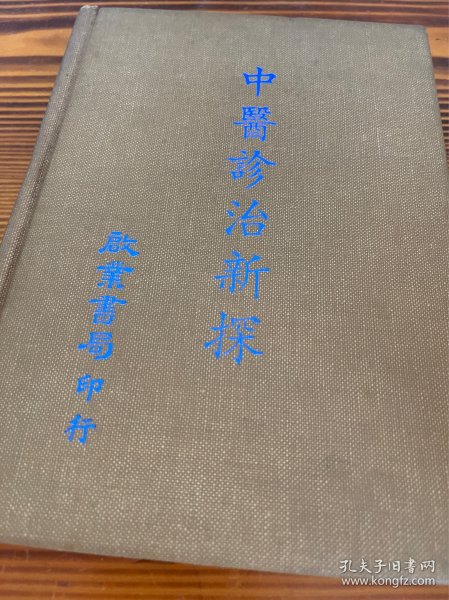 中醫診治新探
啟業書局印行
孔夫子旧书网
www.kongfz.com